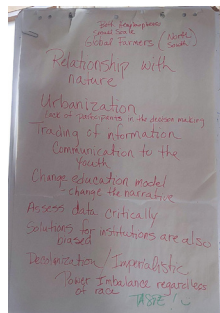 Small Scale
Global Farmers (North
South
Relationship with
nature
Urbanization
Lack of participants in the decision making
Trading of information
Communication to the
Youth
Change education model
- change the narrative
Assess data critically
Solutions for institutions are also
biased
Decolonization / Imperialistic
Power Imbalance regardless
of race
TASTE